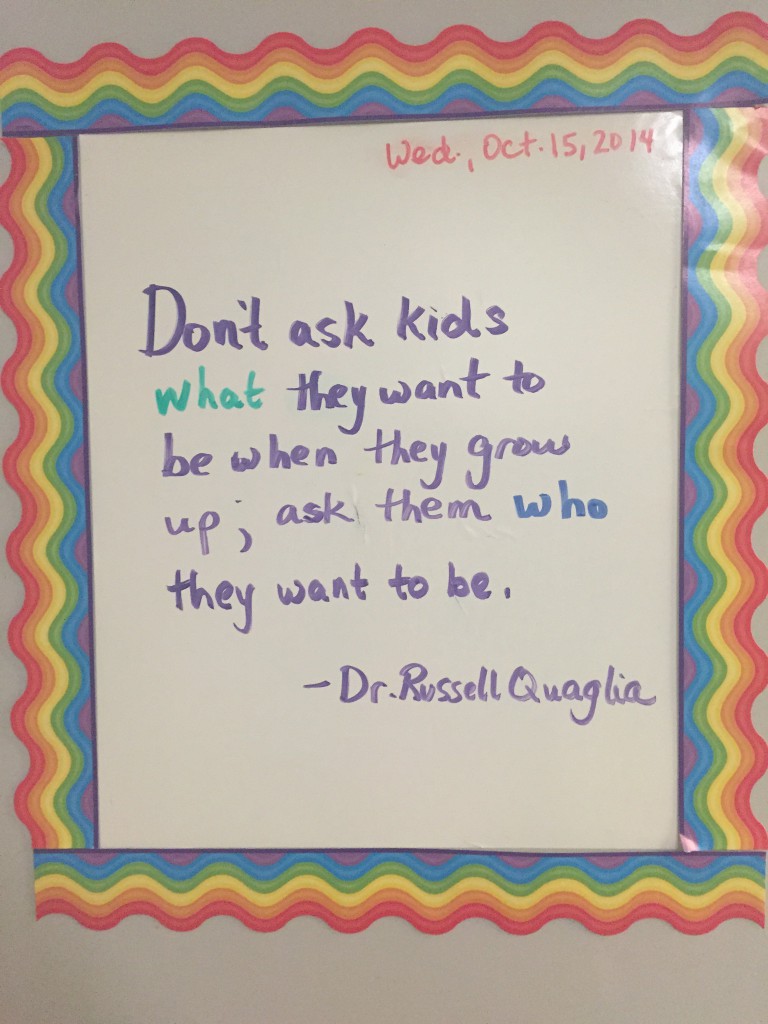 Wed., Oct. 15, 2014
Don't ask kids
what they want to
be when they grow
up; ask them who
they want to be.
- Dr. Russell Quaglia